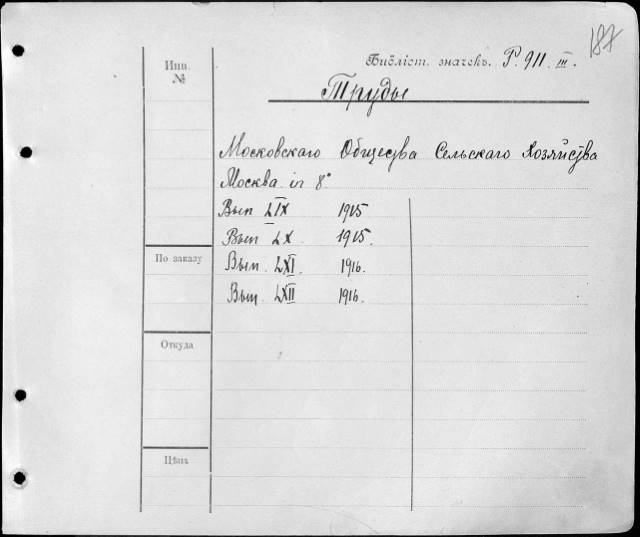 187
Инв. №
Библіот. значекъ. P. 911. III.
Труды
Московскаго Общества Сельскаго Хозяйства
Москва in 8°
Вып LIX 1915
Вып LX. 1915.
По заказу
Вып. LXI. 1916.
Вып. LXII 1916.
Откуда
Цѣна